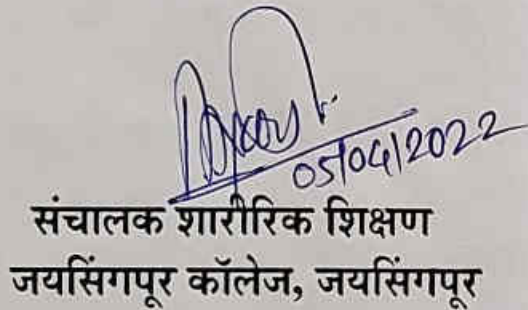 05/04/2022
संचालक शारीरिक शिक्षण
जयसिंगपूर कॉलेज, जयसिंगपूर